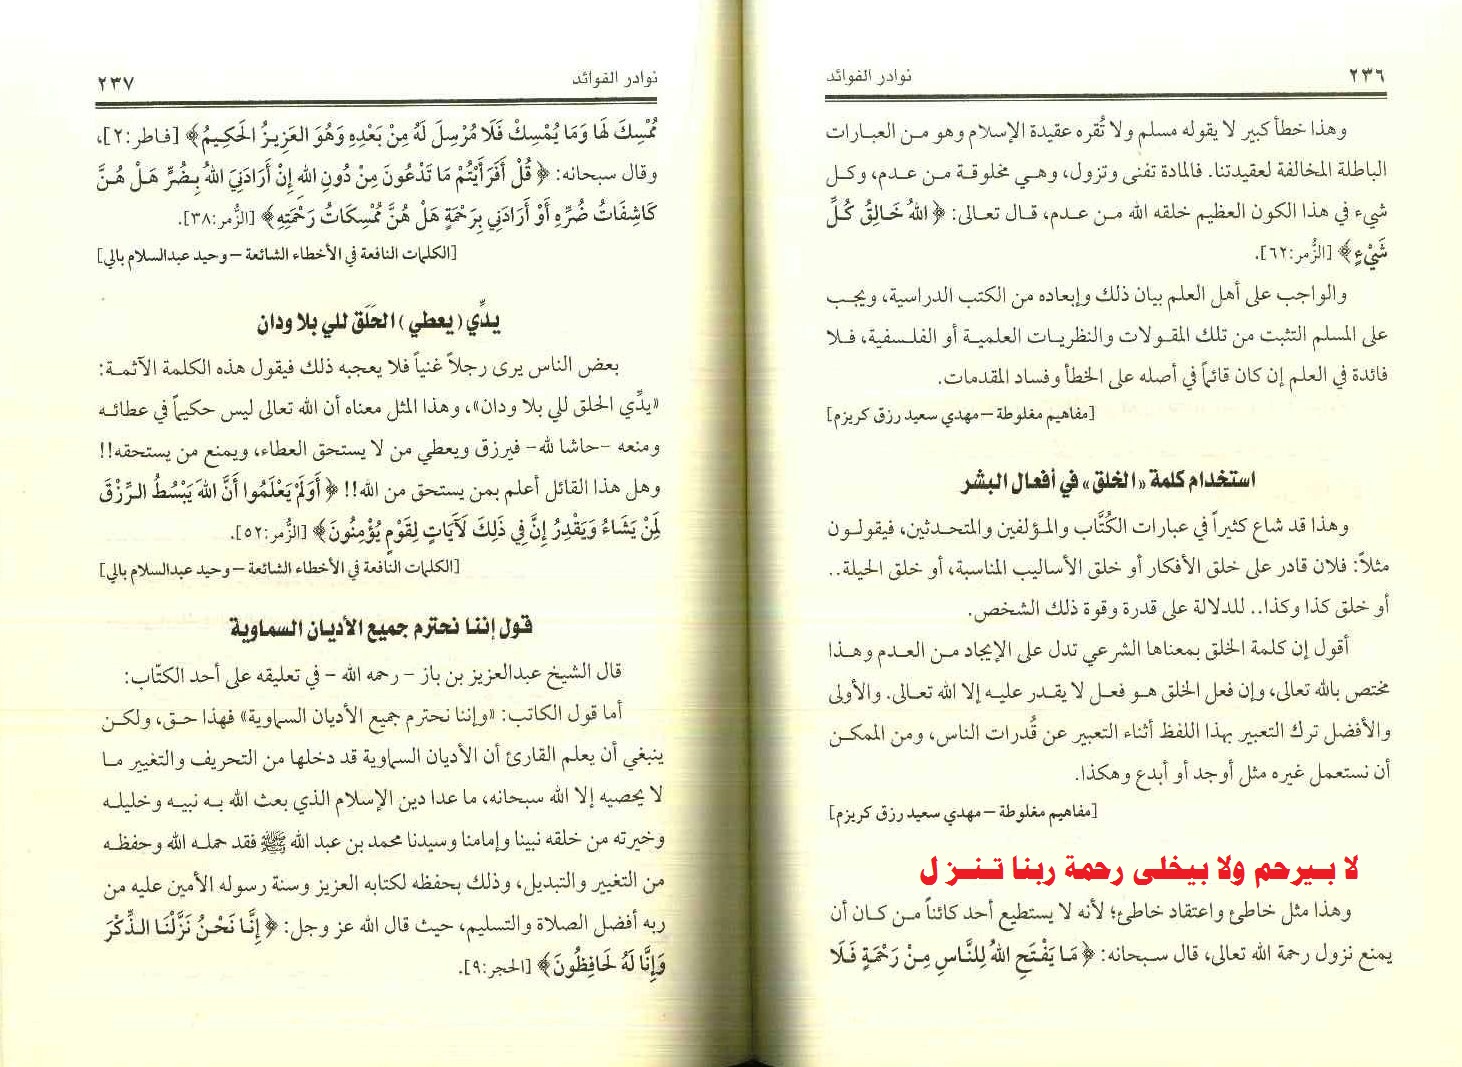 ٢٣٦ نوادر الفوائد
وهذا خطأ كبير لا يقوله مسلم ولا تُقره عقيدة الإسلام وهو من العبارات
الباطلة المخالفة لعقيدتنا. فالمادة تفنى وتزول، وهي مخلوقة من عدم، وكل
شيء في هذا الكون العظيم خلقه الله من عدم، قال تعالى: ﴿اللهُ خَالِقُ كُلِّ
شَيْءٍ﴾ [الزُّمر:٦٢].
والواجب على أهل العلم بيان ذلك وإبعاده من الكتب الدراسية، ويجب
على المسلم التثبت من تلك المقولات والنظريات العلمية أو الفلسفية، فلا
فائدة في العلم إن كان قائماً في أصله على الخطأ وفساد المقدمات.
[مفاهيم مغلوطة – مهدي سعيد رزق كريزم]
استخدام كلمة «الخلق» في أفعال البشر
وهذا قد شاع كثيراً في عبارات الكُتَّاب والمؤلفين والمتحدثين، فيقولون
مثلاً: فلان قادر على خلق الأفكار أو خلق الأساليب المناسبة، أو خلق الحيلة..
أو خلق كذا وكذا.. للدلالة على قدرة وقوة ذلك الشخص.
أقول إن كلمة الخلق بمعناها الشرعي تدل على الإيجاد من العدم وهذا
مختص بالله تعالى، وإن فعل الخلق هو فعل لا يقدر عليه إلا الله تعالى. والأولى
والأفضل ترك التعبير بهذا اللفظ أثناء التعبير عن قُدرات الناس، ومن الممكن
أن نستعمل غيره مثل أوجد أو أبدع وهكذا.
[مفاهيم مغلوطة – مهدي سعيد رزق كريزم]
لا بيرحم ولا بيخلى رحمة ربنا تنزل
وهذا مثل خاطئ واعتقاد خاطئ؛ لأنه لا يستطيع أحد كائناً من كان أن
يمنع نزول رحمة الله تعالى، قال سبحانه: ﴿مَا يَفْتَحِ اللهُ لِلنَّاسِ مِنْ رَحْمَةٍ فَلَا
نوادر الفوائد ٢٣٧
مُمْسِكَ لَهَا وَمَا يُمْسِكْ فَلَا مُرْسِلَ لَهُ مِنْ بَعْدِهِ وَهُوَ العَزِيزُ الحَكِيمُ﴾ [فاطر:٢]،
وقال سبحانه: ﴿قُلْ أَفَرَأَيْتُمْ مَا تَدْعُونَ مِنْ دُونِ اللهِ إِنْ أَرَادَنِيَ اللهُ بِضُرٍّ هَلْ هُنَّ
كَاشِفَاتُ ضُرِّهِ أَوْ أَرَادَنِي بِرَحْمَةٍ هَلْ هُنَّ مُمْسِكَاتُ رَحْمَتِهِ﴾ [الزُّمر:٣٨].
[الكلمات النافعة في الأخطاء الشائعة – وحيد عبدالسلام بالي]
يدِّي (يعطي) الحَلَق للي بلا ودان
بعض الناس يرى رجلاً غنياً فلا يعجبه ذلك فيقول هذه الكلمة الآثمة:
«يدِّي الحلق للي بلا ودان»، وهذا المثل معناه أن الله تعالى ليس حكيماً في عطائه
ومنعه -حاشا لله- فيرزق ويعطي من لا يستحق العطاء، ويمنع من يستحقه!!
وهل هذا القائل أعلم بمن يستحق من الله!! ﴿أَوَلَمْ يَعْلَمُوا أَنَّ اللهَ يَبْسُطُ الرِّزْقَ
لِمَنْ يَشَاءُ وَيَقْدِرُ إِنَّ فِي ذَلِكَ لَآَيَاتٍ لِقَوْمٍ يُؤْمِنُونَ﴾ [الزُّمر:٥٢].
[الكلمات النافعة في الأخطاء الشائعة – وحيد عبدالسلام بالي]
قول إننا نحترم جميع الأديان السماوية
قال الشيخ عبدالعزيز بن باز – رحمه الله – في تعليقه على أحد الكتّاب:
أما قول الكاتب: «وإننا نحترم جميع الأديان السماوية» فهذا حق، ولكن
ينبغي أن يعلم القارئ أن الأديان السماوية قد دخلها من التحريف والتغيير ما
لا يحصيه إلا الله سبحانه، ما عدا دين الإسلام الذي بعث الله به نبيه وخليله
وخيرته من خلقه نبينا وإمامنا وسيدنا محمد بن عبد الله ﷺ فقد حمله الله وحفظه
من التغيير والتبديل، وذلك بحفظه لكتابه العزيز وسنة رسوله الأمين عليه من
ربه أفضل الصلاة والتسليم، حيث قال الله عز وجل: ﴿إِنَّا نَحْنُ نَزَّلْنَا الذِّكْرَ
وَإِنَّا لَهُ لَحَافِظُونَ﴾ [الحجر:٩].